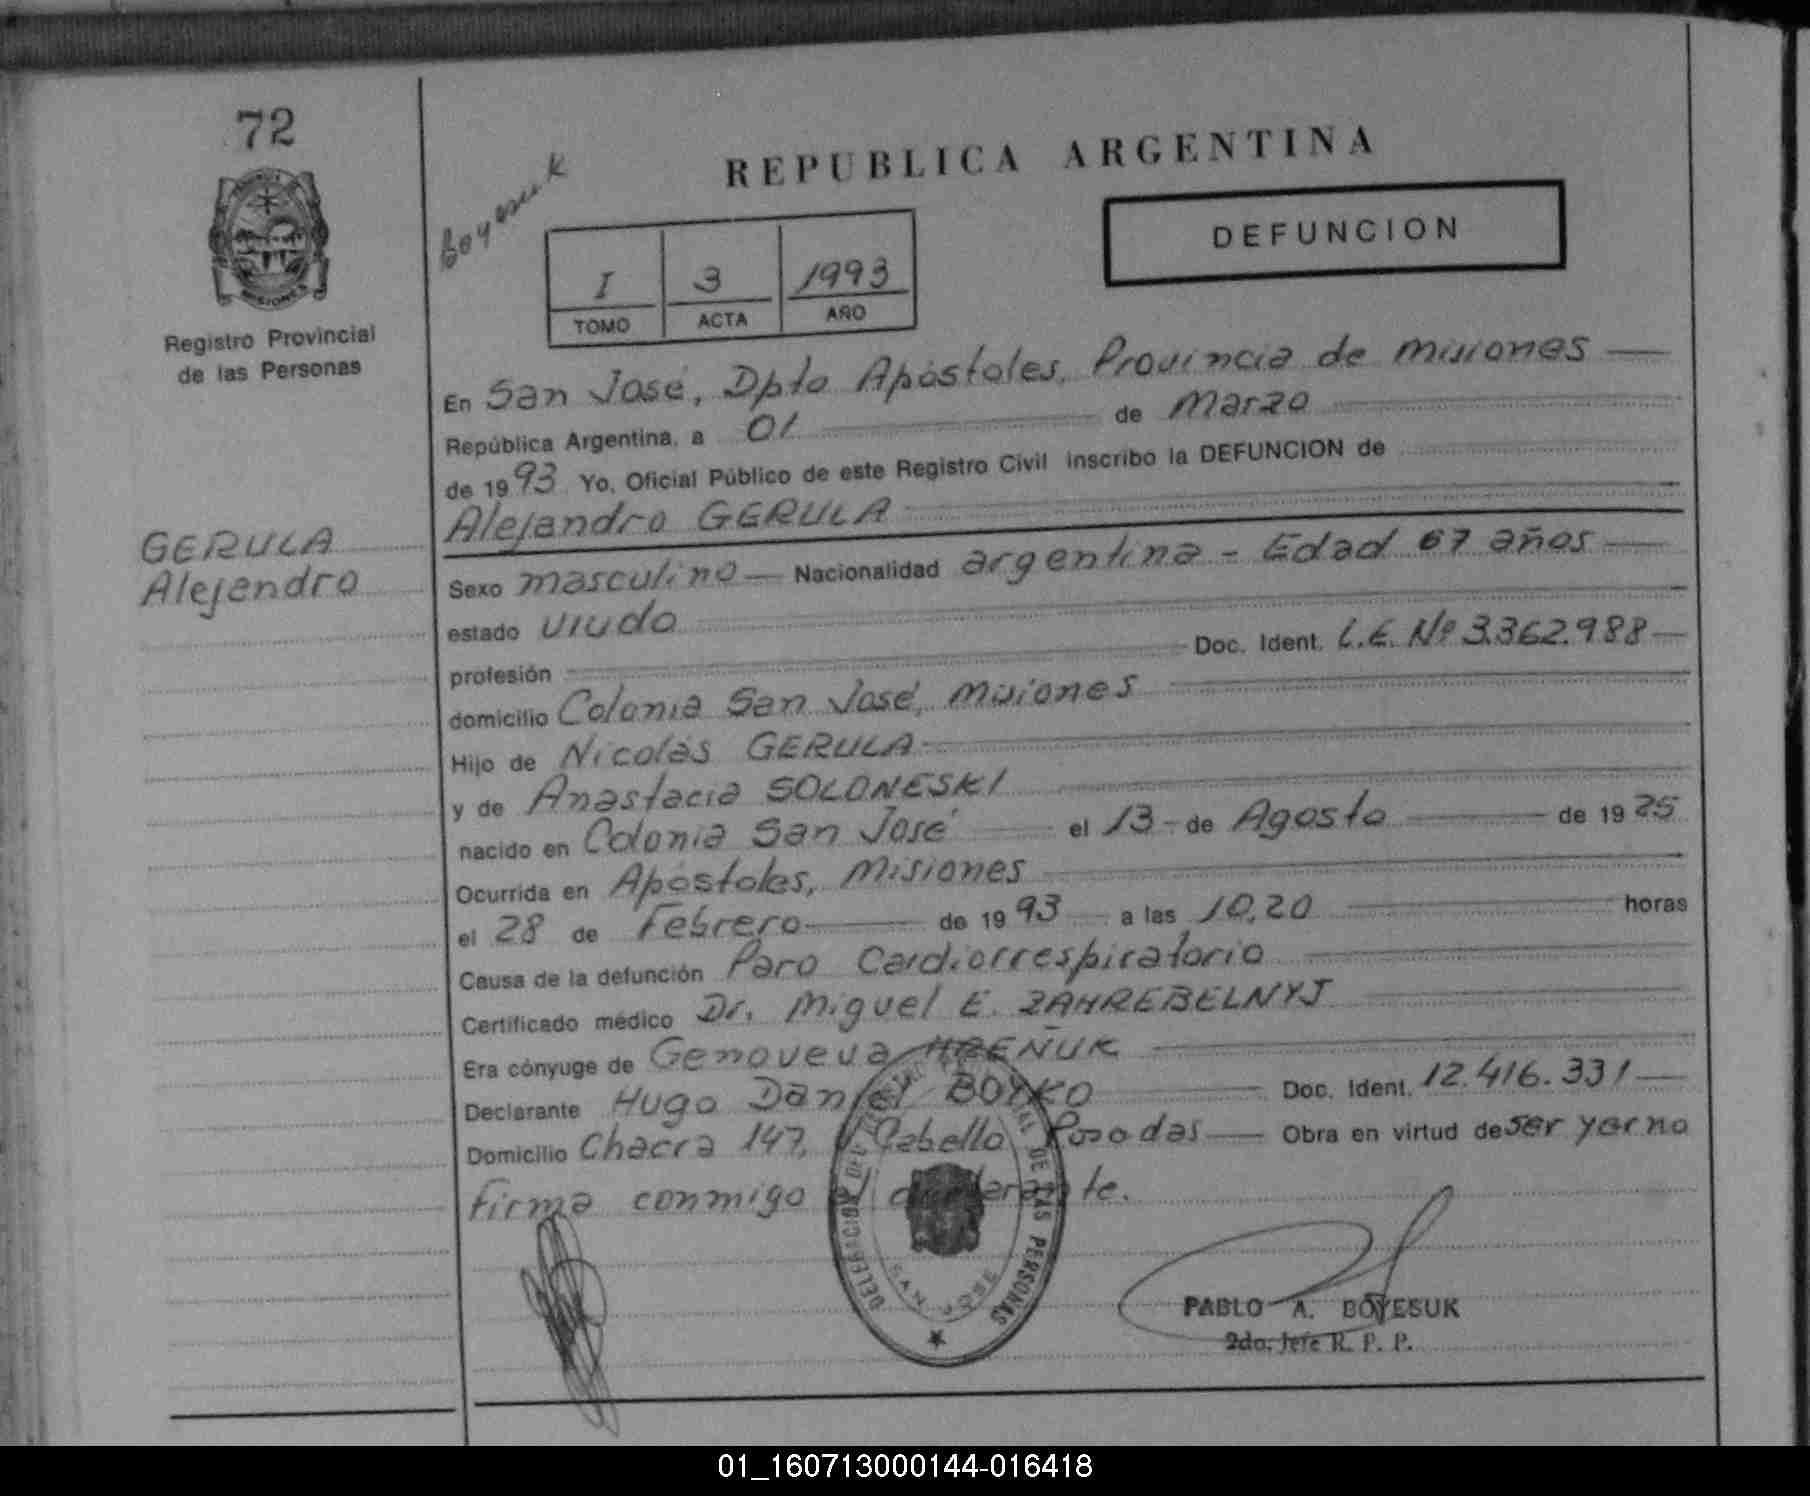 72
MISIONES
Registro Provincial
de las Personas
GERULA
Alejandro
Boyesuk
REPUBLICA ARGENTINA
DEFUNCION
I 3 1993
TOMO ACTA AÑO
En San José, Dpto Apóstoles, Provincia de Misiones
República Argentina, a 01 de Marzo
de 1993 Yo, Oficial Público de este Registro Civil inscribo la DEFUNCION de
Alejandro GERULA
Sexo masculino - Nacionalidad argentina - Edad 67 años
estado viudo
profesión Doc. Ident. L.E. Nº 3.362.988
domicilio Colonia San José, Misiones
Hijo de Nicolás GERULA
y de Anastacia SOLONESKI
nacido en Colonia San José el 13 - de Agosto de 1925
Ocurrida en Apóstoles, Misiones
el 28 de Febrero de 1993 a las 10,20 horas
Causa de la defunción Paro Cardiorrespiratorio
Certificado médico Dr. Miguel E. ZAHREBELNYJ
Era cónyuge de Genoveva HREÑUK
Declarante Hugo Daniel BOYKO Doc. Ident. 12.416.331
Domicilio Chacra 147, Cabello Posadas Obra en virtud de ser yerno
Firma conmigo el declarante.
DELEGACION DEL REGISTRO PROVINCIAL DE LAS PERSONAS
SAN JOSE
PABLO A. BOYESUK
2do. Jefe R. P. P.
01_160713000144-016418